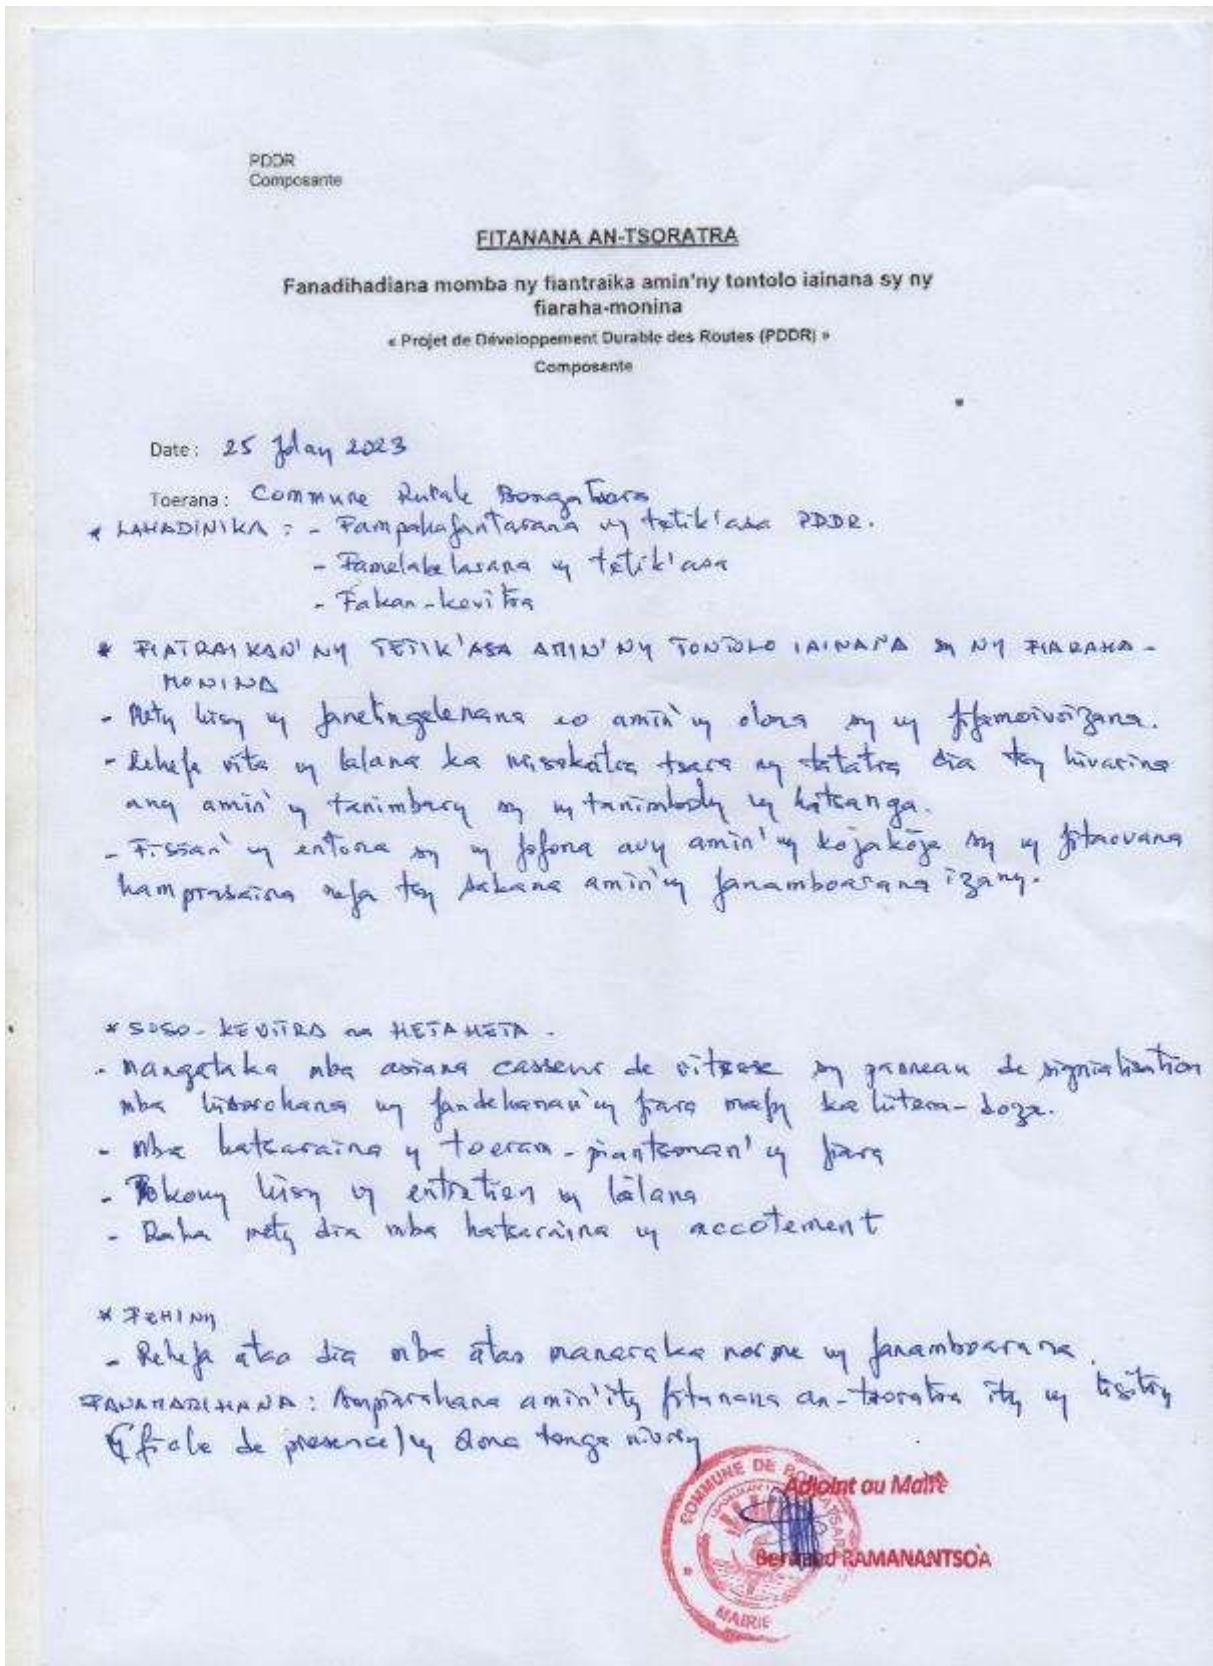 PDDR
Composante
FITANANA AN-TSORATRA
Fanadihadiana momba ny fiantraika amin'ny tontolo iainana sy ny
fiaraha-monina
« Projet de Développement Durable des Routes (PDDR) »
Composante
Date : 25 Jolay 2023
Toerana : Commune Rurale Bongatsara
* LAHADINIKA : - Fampahafantarana ny tetik'asa PDDR.
- Famelabelarana ny tetik'asa
- Fakan-kevitra
* FIATRAIKAN' NY TETIK'ASA AMIN' NY TONTOLO IAINANA sy NY FIARAHA-
MONINA
- Mety hisy ny fanelingelenana eo amin'ny olona sy ny fifamoivoizana.
- Rehefa vita ny lalana ka misokatra tsara ny tatatra dia tsy hivarina
any amin'ny tanimbary sy ny tanimboly ny hatsanga.
- Fisian' ny entona sy ny fofona avy amin'ny kojakoja sy ny fitaovana
hampiasaina nefa tsy sakana amin'ny fanamboarana izany.
* SOSO-KEVITRA na HETAHETA -
- Mangataka mba asiana casseur de vitesse sy panneau de signialisation
mba hisorohana ny fandehanan'ny fiara mafy ka hitera-doza.
- mba hatsaraina ny toeram-piantsonan'ny fiara
- Tokony hisy ny entretien ny làlana
- Raha mety dia mba hatsaraina ny accotement
* FEHINY
- Rehefa atao dia mba atao manaraka norme ny fanamboarana.
FANAMARIHANA : Ampiarahana amin'ity fitanana an-tsoratra ity ny lisitry
(fiche de présence) ny olona tonga nivory
COMMUNE DE BONGATSARA
Adjoint au Maire
Bertrand RAMANANTSOA
MAIRIE